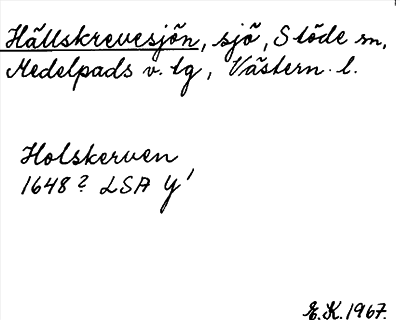 Hällskrevesjön, sjö, Stöde sn,
Medelpads v. tg, Västern. l.
Holskerven
1648? LSA Y'
E.K. 1967.